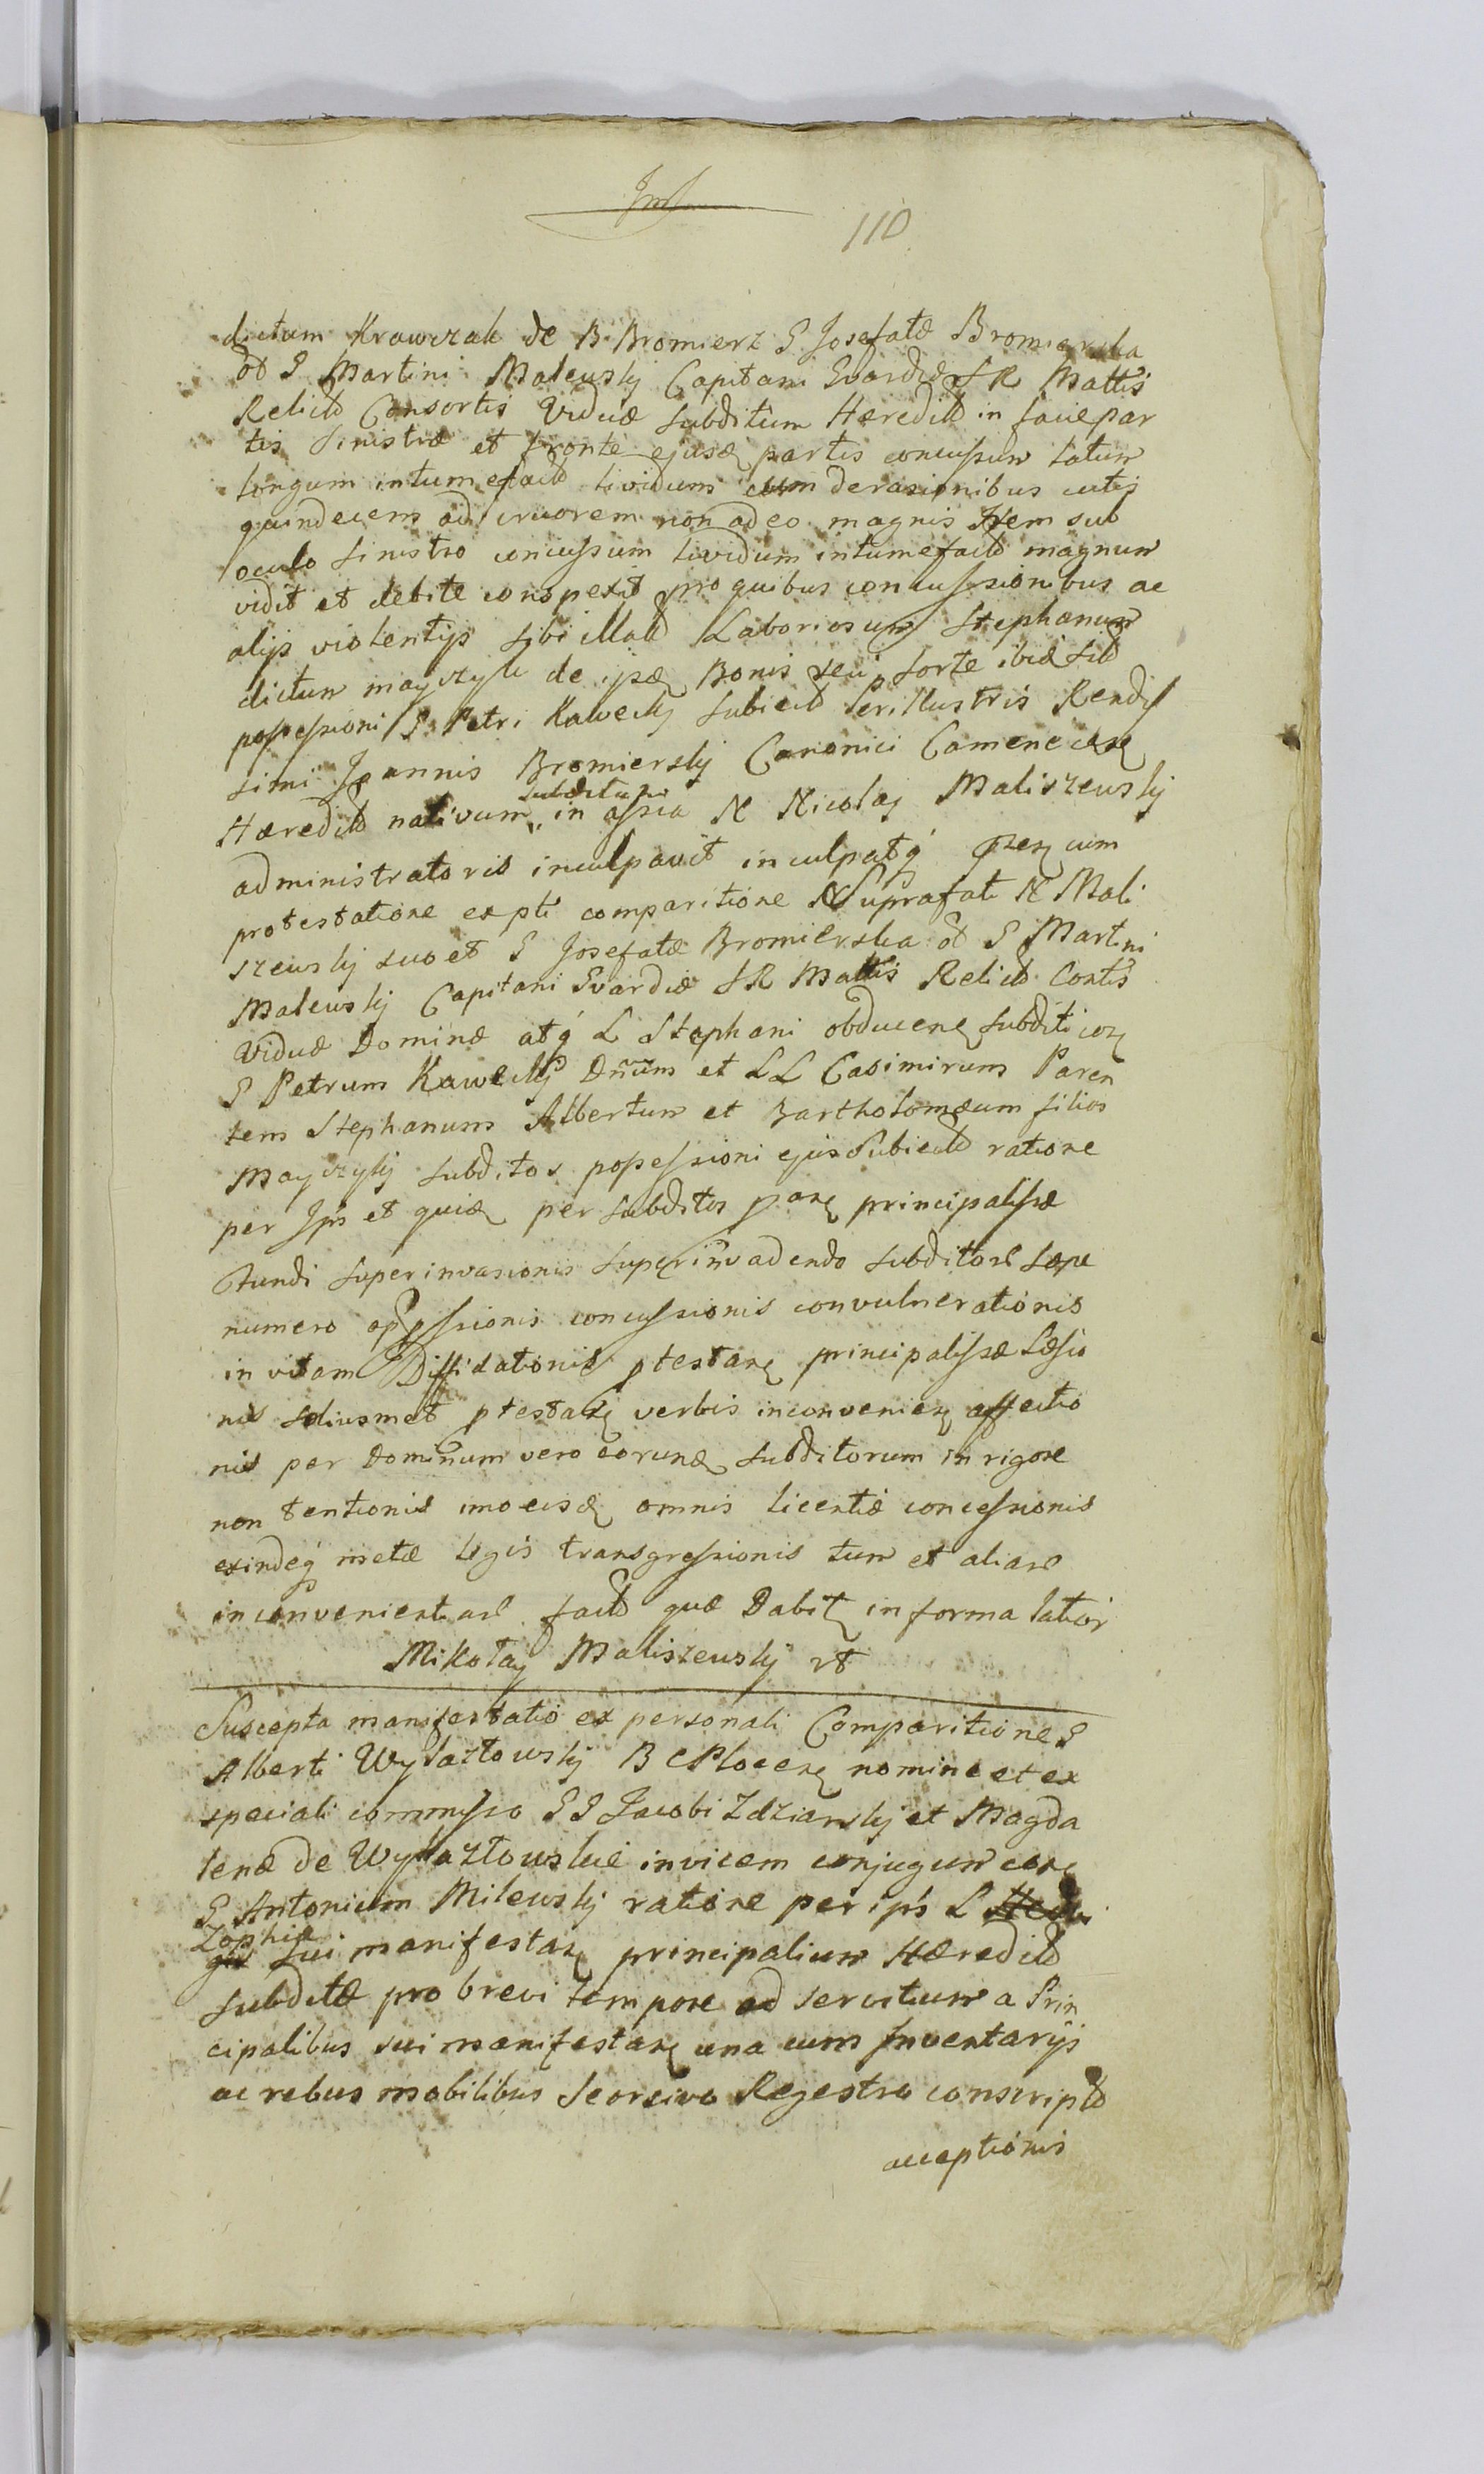 110
dictum Krawczak de B. Bromierz G Josefatæ Bromierska
od G Martini Maleuskj Capitani Gvardiæ S R Mattis
Relictæ Consortis Viduæ Subditum Hæredit in facie par
tis sinistræ et fronte ejusdę partis concussum latum
longum intumefact lividum cum derasionibus cutis
quindecem ad cruorem non adeo magnis Item sub
oculo sinistro concussum lividum intumefact magnum
vidit et debite conspexit pro quibus concussionibus ac
alijs violentijs sibi illat Laboriosum Stephanum
dictum mayczyk de ijsdę Bonis seu sorte ibid sit
possessioni G Petri Kaweckj subiect Perillustris Rendis
simi Joannis Bromierskj Canonici Camenecenę
Hæredit nativum subditum in assia N Nicolaj Maliszewskj
administratoris inculpavit inculpatq́ prę cum
protestatione ex pti comparitione N Suprafati N Mali
szewskj suo et G Josefatæ Bromierska od G Martini
Maleuskj Capitani Gvardiæ S R Mattis Relict Contis
Viduæ Dominæ atq́ L Stephani obducenę subditi coę
G Petrum Kaweckj Dnum et LL Casimirum Paren
tem Stephanum Albertum et Bartholomæum filios
Mayczykj subditos possessioni ejus Subiect ratione
per Ips et quidę per subditos panę principalissæ
Fundi superinvasionis superinvadendo subditos sæpe
numero oppssionis concussionis convulnerationis
in vitam Diffidationis ptestanę principalissæ Læsio
nis sdiusmet ptestanę verbis inconvenienę affectio
nis per Dominum vero eorundę subditorum in rigore
non tentionis imo eisdę omnis licentiæ concessionis
exindeq́ metæ legis transgressionis tum et aliar
inconvenientiar fact quæ Dabit in forma latior
Mikołay Maliszewskj
Suscepta manifestatio ex personali Comparitione G
Alberti Wylazłowskj B C Plocenę nomine et ex
speciali commisso GG Jacobi Zdziarskj et Magda
lenæ de Wylazłowskie invicem conjugum coę
G Antonium Milewskj ratione per ips L
Zophiæ sui manifestanę principalium Hæredit
subditæ pro brevi tempore ad servitium a Prin
cipalibus sui manifestanę una cum Inventarijs
ac rebus mobilibus Seorsivo Regestro conscript
acceptionis